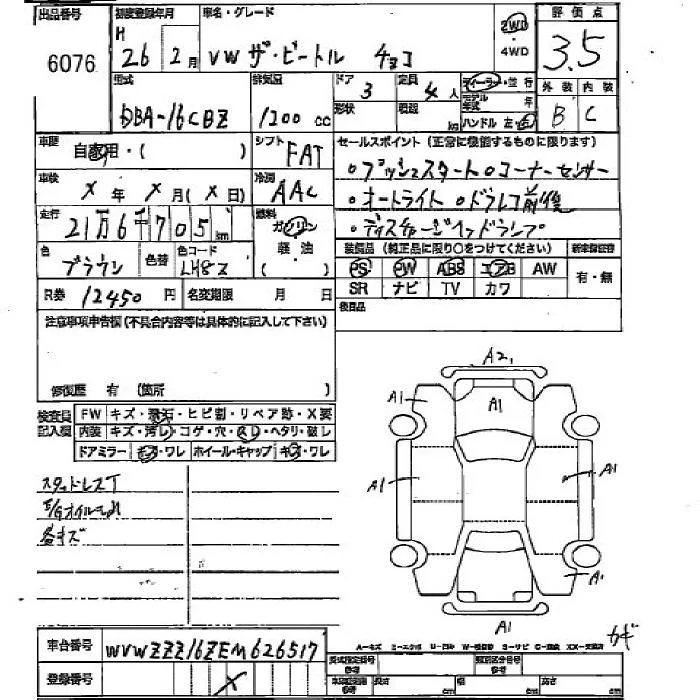 出品番号 初度登録年月 車名・グレード 評価点
6076 H 26 2月 VW ザ・ビートル チョコ 2WD ・ 4WD 3.5
型式 排気量 ドア 3 定員 4 人 ディーラー・並行 外装 内装
DBA-16CBZ 1200 cc 形状 積載 kg モデル年式 年 B C
ハンドル 左・右
車歴 自家用・( ) シフト FAT セールスポイント(正常に機能するものに限ります)
車検 X 年 X 月(X日) 冷房 AAC 。プッシュスタート。コーナーセンサー
走行 21万6千705 km 燃料 ガソリン 。オートライト 。ドラレコ前後
軽油 ・( ) 。ディスチャージヘッドランプ
色 ブラウン 色替 色コード LH8Z 装備品(純正品に限り○をつけてください) 新車保証書
PS PW ABS エアB AW 有・無
R券 12450 円 名変期限 月 日 SR ナビ TV カワ
注意事項申告欄(不具合内容等は具体的に記入して下さい) 後日品
修復歴 有 (箇所 )
検査員記入欄 FW キズ・飛石・ヒビ割・リペア跡・X要
内装 キズ・汚レ・コゲ・穴・スレ・ヘタリ・破レ
ドアミラー キズ・ワレ ホイール・キャップ キズ・ワレ
A2
A1 A1
A1 A1
A1
A1
スタッドレスT
各キズ
カギ
A-キズ
車台番号 WVWZZZ16ZEM626517
登録番号 X
型式指定番号 参考 類別区分番号 参考
車両重量 参考 長さ cm 幅 cm 高さ cm